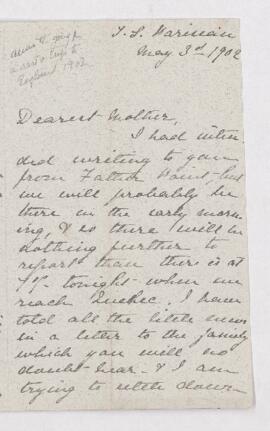 going for
a rest & trip to
England 1902
T. S. Parisian
May 3rd 1902
Dearest Mother,
I had inten
ded writing to you
from Father Point, but
we will probably be
there in the early morn
ing, & so there will be
nothing further to
report than there is at
tonight when we
reach Quebec. I have
told all the little news
in a letter to the family
which you will no
doubt hear. & I am
trying to